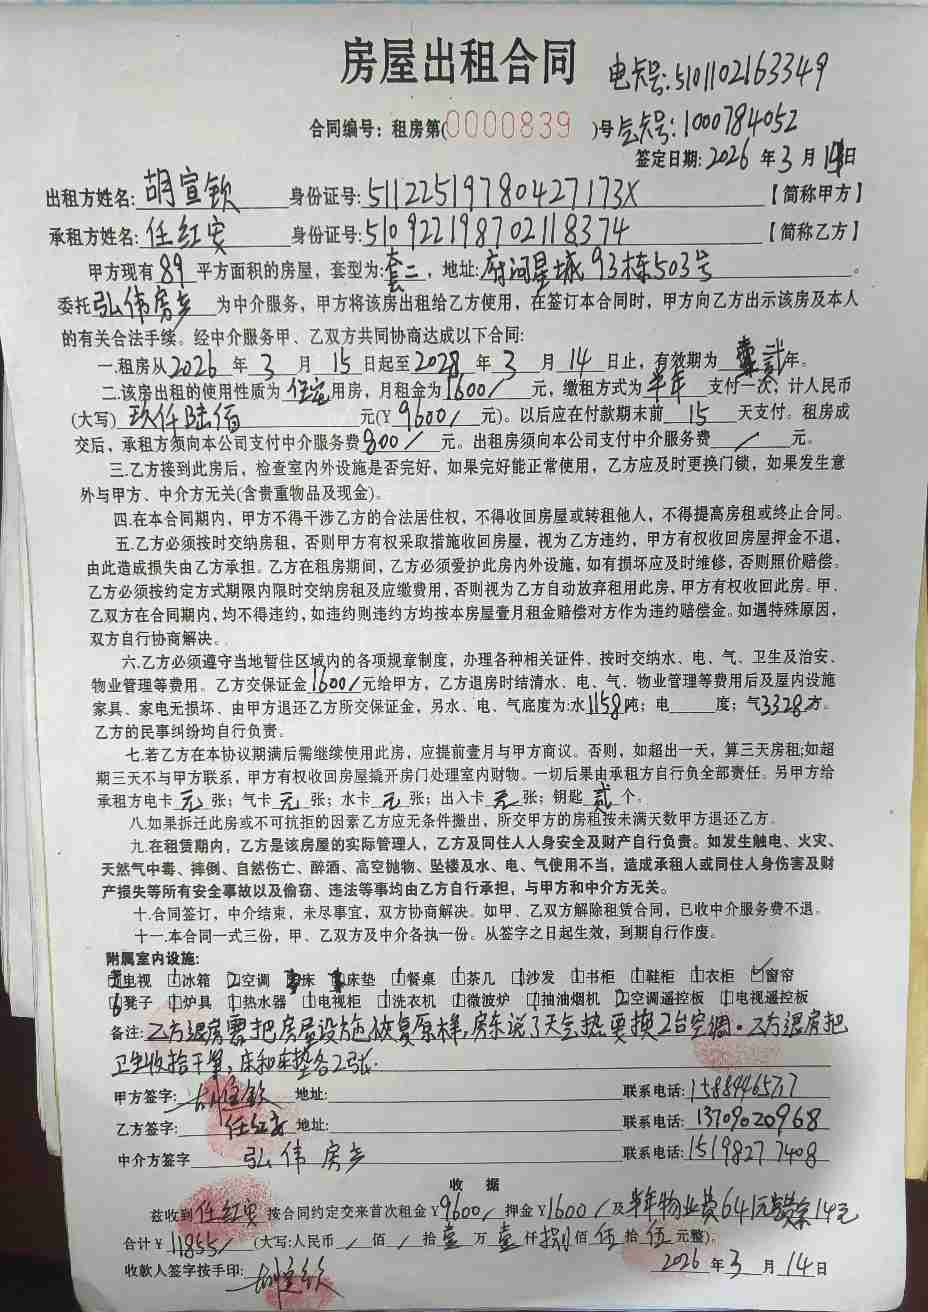 房屋出租合同
电卡号:5101102163349
合同编号：租房第(0000839)号 气卡号:1000784052
签定日期:2026年3月14日
出租方姓名:胡宣钦 身份证号:51122519780427173X 【简称甲方】
承租方姓名:任红安 身份证号:510922198702118374 【简称乙方】
甲方现有89平方面积的房屋，套型为:套二，地址:府河星城93栋503号。
委托弘伟房产为中介服务，甲方将该房出租给乙方使用，在签订本合同时，甲方向乙方出示该房及本人
的有关合法手续。经中介服务甲、乙双方共同协商达成以下合同:
一.租房从2026年3月15日起至2028年3月14日止，有效期为贰年。
二.该房出租的使用性质为住宅用房，月租金为1600/元，缴租方式为半年支付一次，计人民币
(大写)玖仟陆佰元(Y9600/元)。以后应在付款期末前15天支付。租房成
交后，承租方须向本公司支付中介服务费800/元。出租房须向本公司支付中介服务费/元。
三.乙方接到此房后，检查室内外设施是否完好，如果完好能正常使用，乙方应及时更换门锁，如果发生意
外与甲方、中介方无关(含贵重物品及现金)。
四.在本合同期内，甲方不得干涉乙方的合法居住权，不得收回房屋或转租他人，不得提高房租或终止合同。
五.乙方必须按时交纳房租，否则甲方有权采取措施收回房屋，视为乙方违约，甲方有权收回房屋押金不退，
由此造成损失由乙方承担。乙方在租房期间，乙方必须爱护此房内外设施，如有损坏应及时维修，否则照价赔偿。
乙方必须按约定方式期限内限时交纳房租及应缴费用，否则视为乙方自动放弃租用此房，甲方有权收回此房。甲.
乙双方在合同期内，均不得违约，如违约则违约方均按本房屋壹月租金赔偿对方作为违约赔偿金。如遇特殊原因，
双方自行协商解决。
六.乙方必须遵守当地暂住区域内的各项规章制度，办理各种相关证件、按时交纳水、电、气、卫生及治安、
物业管理等费用。乙方交保证金1600/元给甲方，乙方退房时结清水、电、气、物业管理等费用后及屋内设施
家具、家电无损坏、由甲方退还乙方所交保证金，另水、电、气底度为:水1158吨；电 度；气3328方。
乙方的民事纠纷均自行负责。
七.若乙方在本协议期满后需继续使用此房，应提前壹月与甲方商议。否则，如超出一天，算三天房租;如超
期三天不与甲方联系，甲方有权收回房屋撬开房门处理室内财物。一切后果由承租方自行负全部责任。另甲方给
承租方电卡 元 张；气卡 元 张；水卡 元 张；出入卡 元 张；钥匙 贰 个。
八.如果拆迁此房或不可抗拒的因素乙方应无条件搬出，所交甲方的房租按未满天数甲方退还乙方。
九.在租赁期内，乙方是该房屋的实际管理人，乙方及同住人人身安全及财产自行负责。如发生触电、火灾、
天然气中毒、摔倒、自然伤亡、醉酒、高空抛物、坠楼及水、电、气使用不当，造成承租人或同住人身伤害及财
产损失等所有安全事故以及偷窃、违法等事均由乙方自行承担，与甲方和中介方无关。
十.合同签订，中介结束，未尽事宜，双方协商解决。如甲、乙双方解除租赁合同，已收中介服务费不退。
十一.本合同一式三份，甲、乙双方及中介各执一份。从签字之日起生效，到期自行作废。
附属室内设施:
电视 1冰箱 2空调 床 床垫 1餐桌 1茶几 1沙发 1书柜 1鞋柜 1衣柜 ✓窗帘
6凳子 1炉具 1热水器 1电视柜 1洗衣机 1微波炉 1抽油烟机 2空调遥控板 1电视遥控板
备注:乙方退房需把房屋设施恢复原样,房东说了天气热要换2台空调。乙方退房把
卫生收拾干净,床和床垫各2张.
甲方签字:胡宣钦 地址: 联系电话:
乙方签字:任红安 地址: 联系电话:13709020968
中介方签字 弘伟房产 联系电话:15198277408
收 据
兹收到任红安按合同约定交来首次租金Y9600/押金Y1600/及半年物业费641元 14元
合计Y11855/(大写:人民币/佰/拾壹万壹仟捌佰伍拾伍元整)。
收款人签字按手印:胡宣钦 2026年3月14日